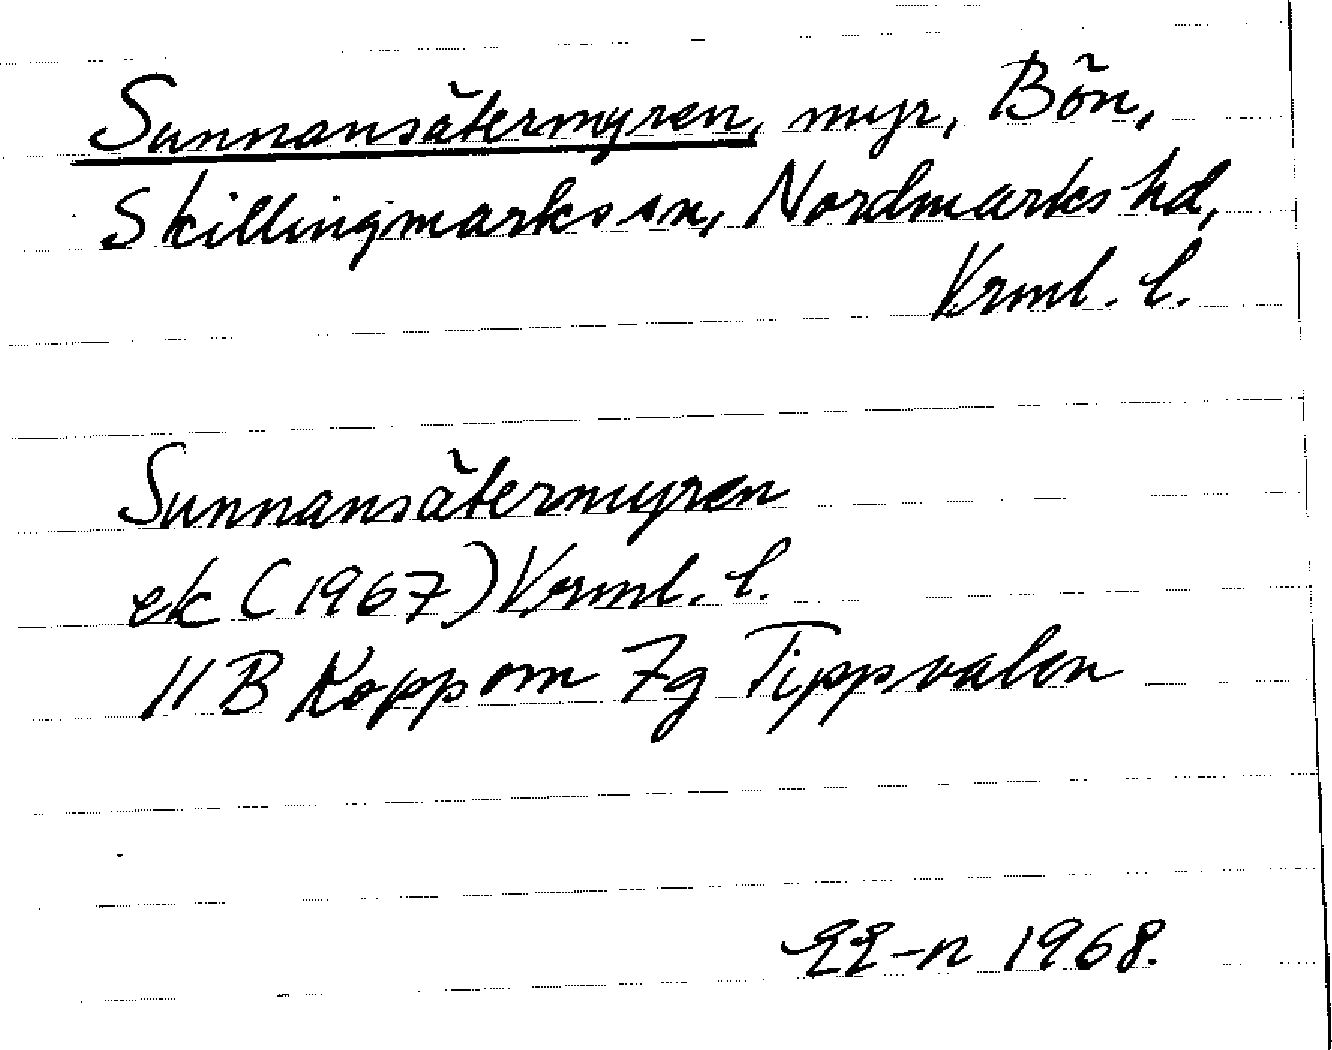 Sunnansätermyren, myr, Bön,
Skillingmarks sn, Nordmarks hd,
Vrml. l.
Sunnansätermyren
ek (1967) Vrml. l.
11B Koppom 7g Tippvalen
EE-n 1968.